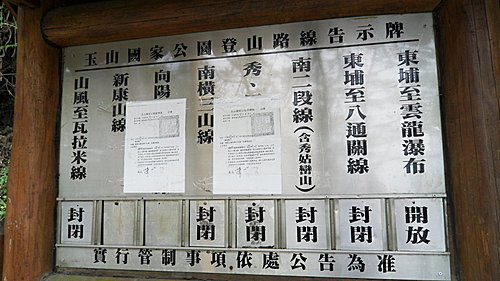 玉山國家公園登山路線告示牌
東埔至雲龍瀑布
東埔至八通關線
南二段線(含秀姑巒山)
秀、
南橫三山線
向陽
新康山線
山風至瓦拉米線
開放
封閉
封閉
封閉
封閉
封閉
實行管制事項依處公告為准